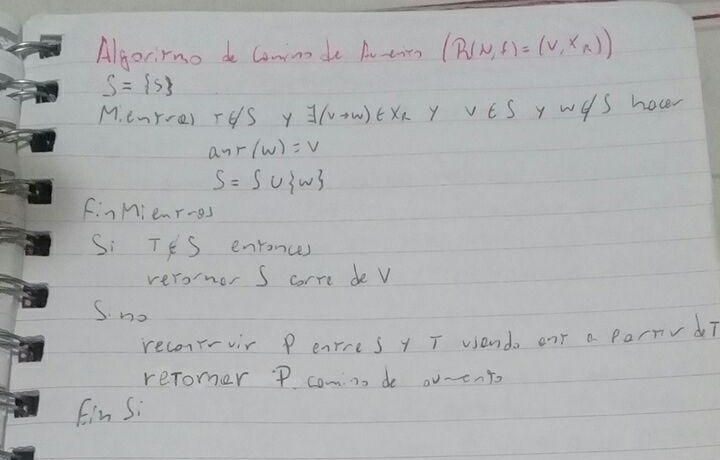 Algoritmo de Camino de Aumento (R(N,f)=(V,X_R))
S = {s}
Mientras t∉S y ∃(v→w)∈X_R y v∈S y w∉S hacer
ant(w) = v
S = S ∪ {w}
FinMientras
Si T∉S entonces
retornar S corte de V
Sino
recontruir P entre S y T usando ant a partir de T
retornar P camino de aumento
Fin Si